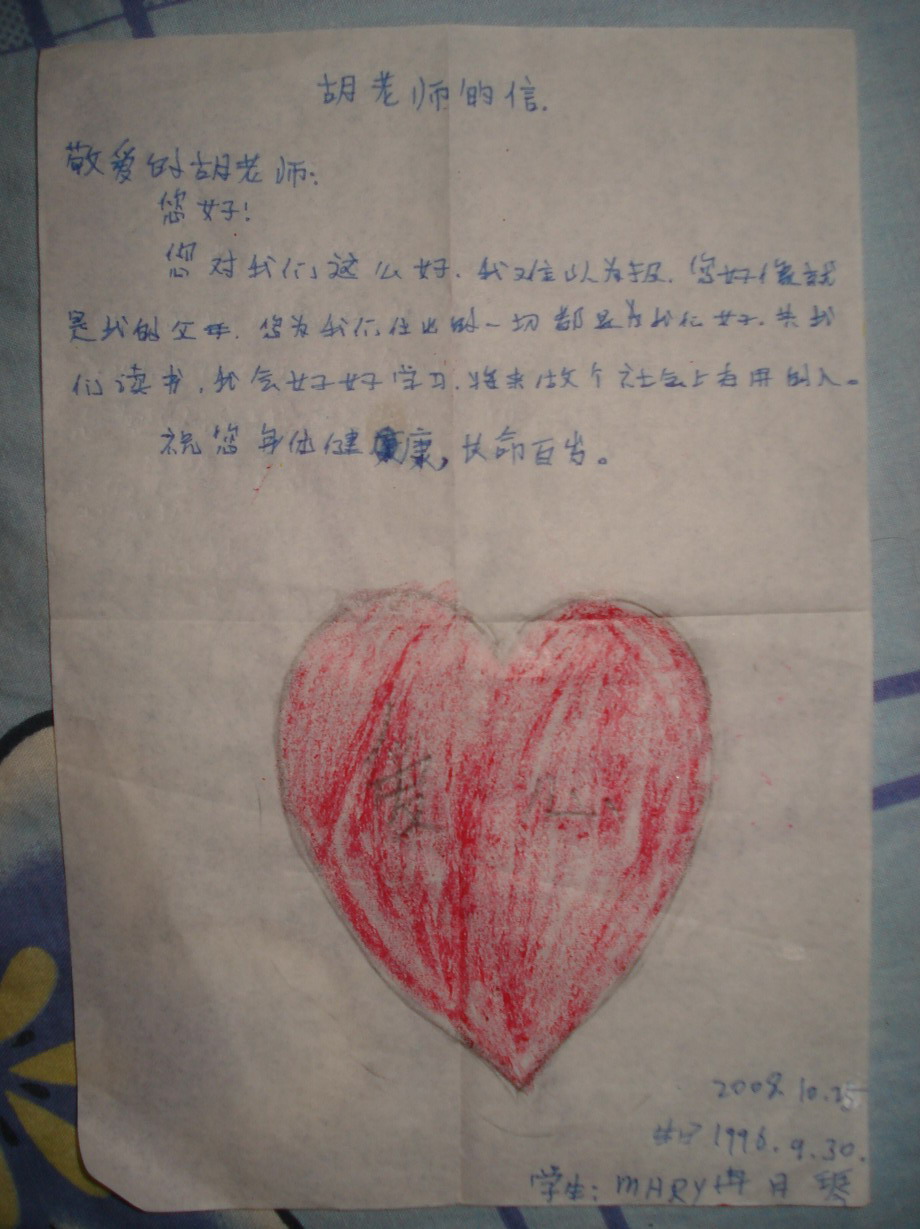 胡老师的信.
敬爱的胡老师:
您好!
您对我们这么好.我难以为报.您好像就
是我的父母.您为我们付出的一切都是为我们好.共我
们读书,我会好好学习.将来做个社会上有用的人。
祝您身体健康,长命百岁。
爱心
2008.10.25
1996.9.30.
学生:MARY 冉月